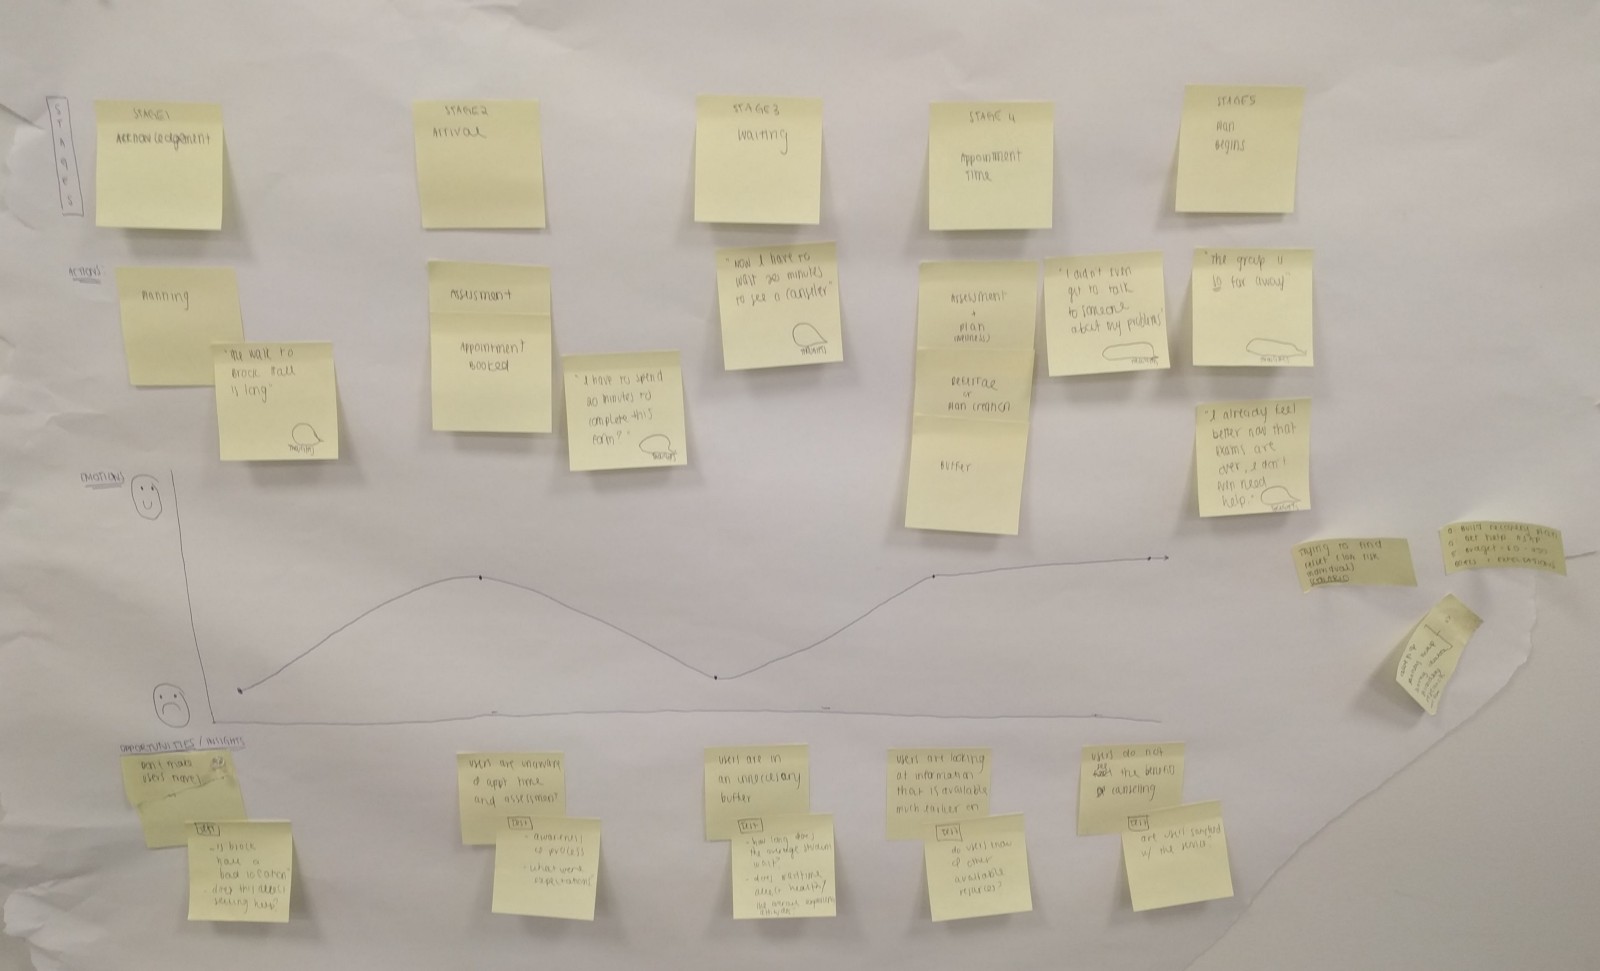 STAGES
STAGE 1
Acknowledgement
STAGE 2
Arrival
STAGE 3
Waiting
STAGE 4
Appointment
Time
STAGE 5
Plan
Begins
ACTIONS
Planning
"The walk to
Brock Hall
is long"
Assesment
Appointment
Booked
"I have to spend
20 minutes to
complete this
form?"
"Now I have to
wait 20 minutes
to see a canseler"
Assesment
+
plan
Referral
or
plan creation
Buffer
"I didn't even
get to talk
to someone
about my problems"
"The group is
so far away"
"I already feel
better now that
exams are
over, I don't
even need
help."
EMOTIONS
Trying to find
OPPORTUNITIES / INSIGHTS
Don't make
users travel
TEST
- is brock
have a
bad location
- does this affect
seeking help?
users are unaware
of appt time
and assesment
TEST
- awareness
of process
- what were
expectations
users are in
an unnecessary
buffer
TEST
- how long does
the average student
wait?
- does waittime
affect health?
users are looking
at information
that is available
much earlier on
TEST
do users know
of other
available
resources?
users do not
see the benefits
of canseling
TEST
are users satisfied
w/ the